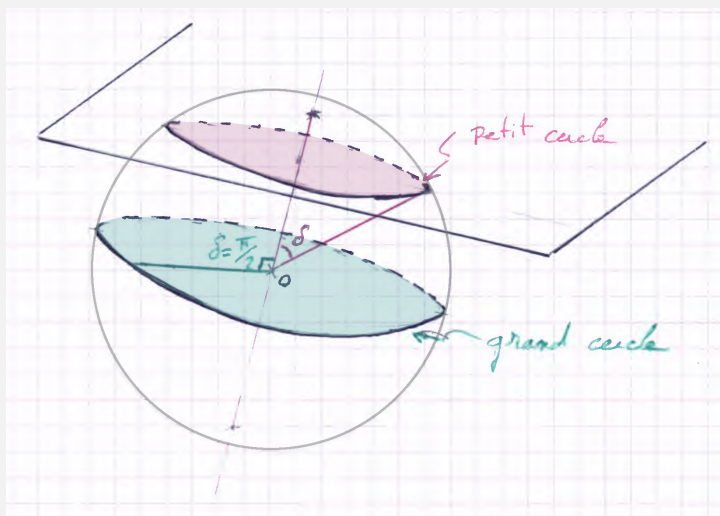 petit cercle
δ
δ = π/2
O
grand cercle